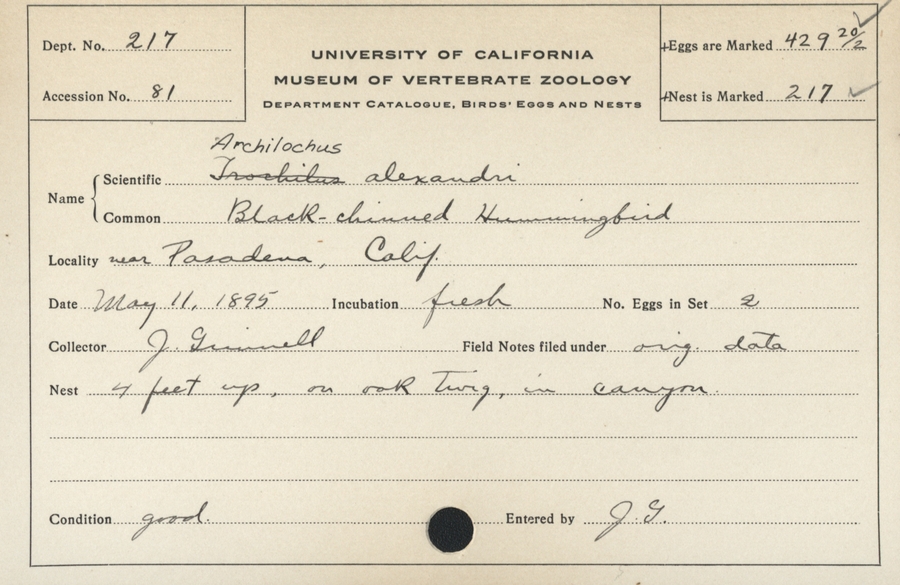 Dept. No. 217
Accession No. 81
UNIVERSITY OF CALIFORNIA
MUSEUM OF VERTEBRATE ZOOLOGY
DEPARTMENT CATALOGUE, BIRDS' EGGS AND NESTS
Eggs are Marked 429 20/2
Nest is Marked 217
Archilochus
Name
Scientific Trochilus alexandri
Common Black-chinned Hummingbird
Locality near Pasadena, Calif.
Date May 11, 1895 Incubation fresh No. Eggs in Set 2
Collector J. Grinnell Field Notes filed under orig. data
Nest 4 feet up, on oak twig, in canyon.
Condition good. Entered by J. G.